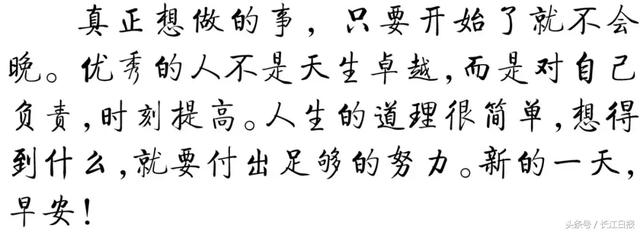 真正想做的事，只要开始了就不会
晚。优秀的人不是天生卓越，而是对自己
负责，时刻提高。人生的道理很简单，想得
到什么，就要付出足够的努力。新的一天，
早安！
头条号／长江日报